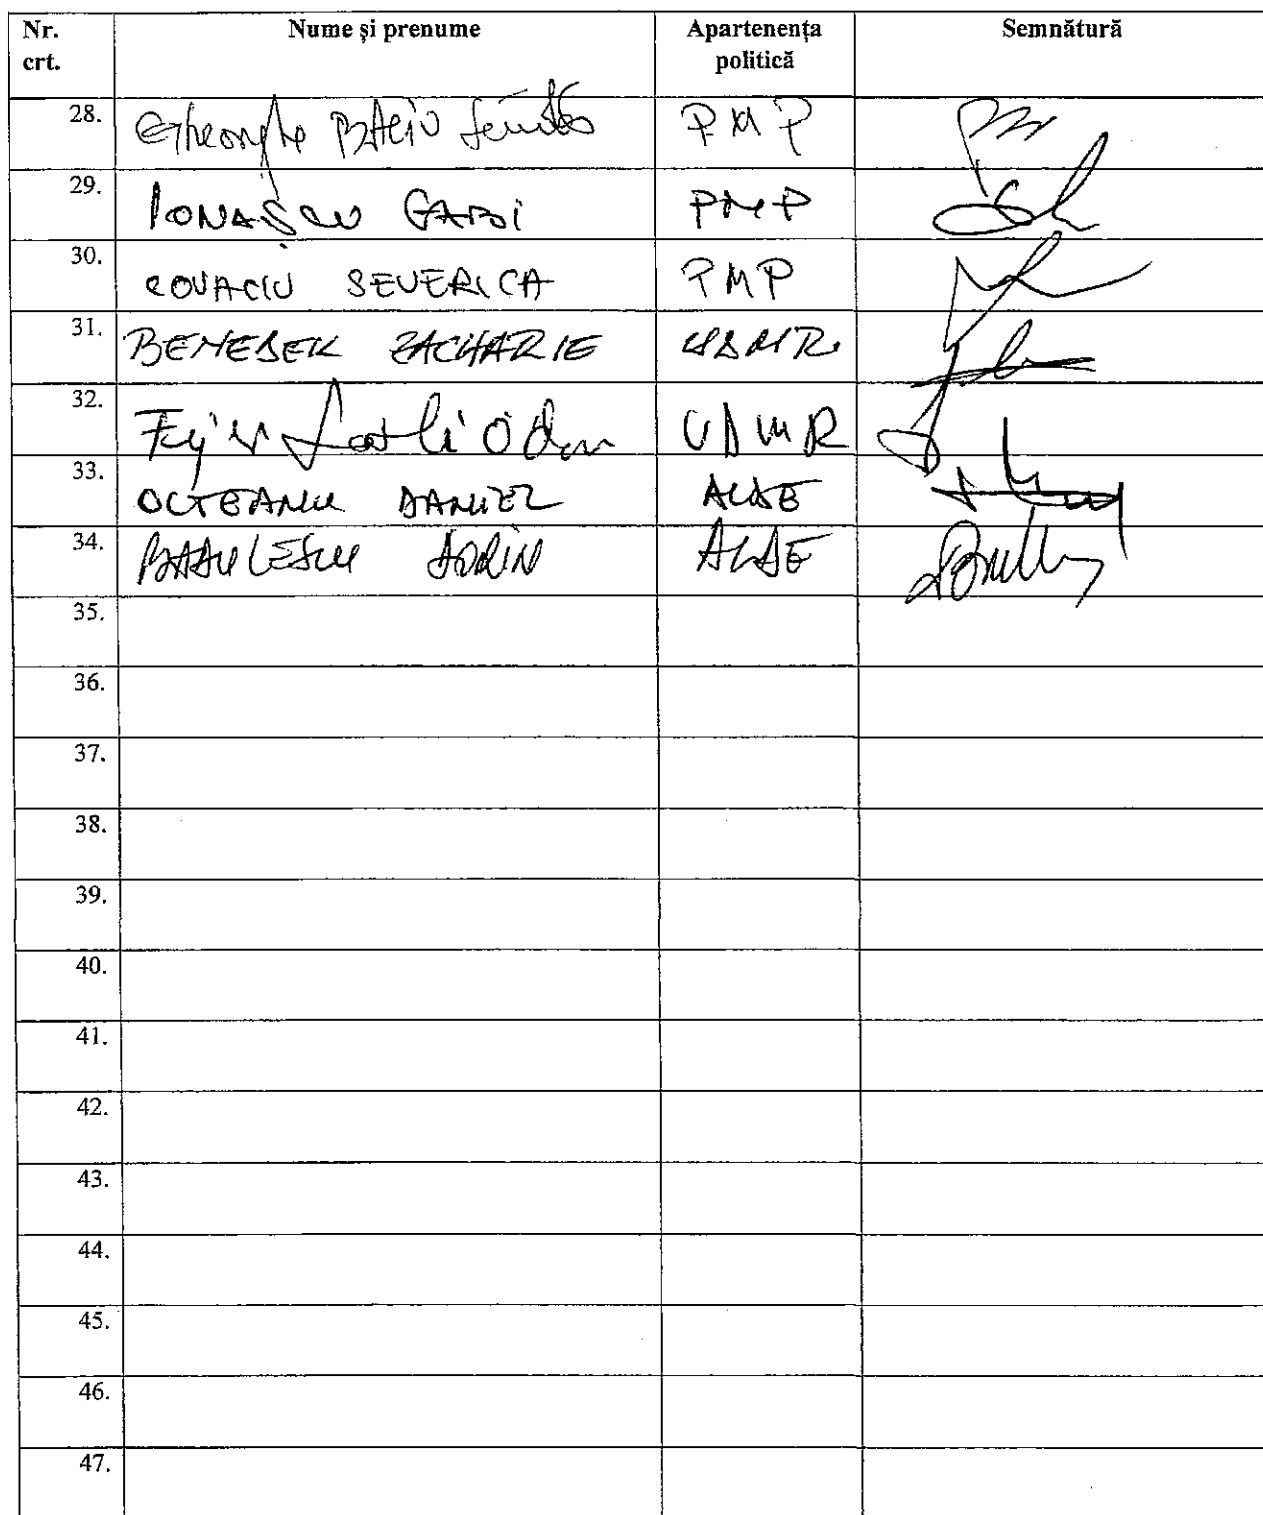 Nr. crt. Nume și prenume Apartenența politică Semnătură
28. Gheorghe PMP
29. IONAȘCU GABI PMP
30. COVACIU SEVERICA PMP
31. BENEDEK ZACHARIE UDMR
32. UDMR
33. OLTEANU DANIEL ALDE
34. BĂDULESCU DORIN ALDE
35.
36.
37.
38.
39.
40.
41.
42.
43.
44.
45.
46.
47.